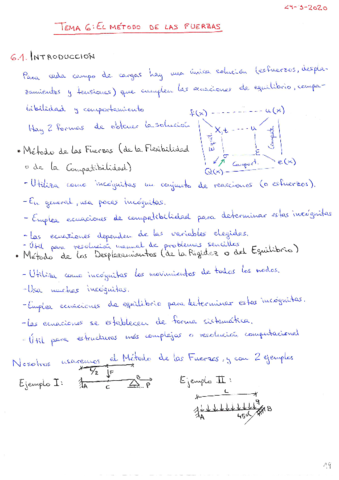 27-3-2020
TEMA 6: EL MÉTODO DE LAS FUERZAS
6.1. INTRODUCCION
Para cada campo de cargas hay una única solución (esfuerzos, despla-
zamientos y tensiones) que cumplen las ecuaciones de equilibrio, compa-
tibilidad y comportamiento
Hay 2 formas de obtener la solución
f(x) u(x)
X, t u
Equil. Compat.
Comport.
Q(x) e(x)
• Método de las Fuerzas (de la Flexibilidad
o de la Compatibilidad)
- Utiliza como incógnitas un conjunto de reacciones (o esfuerzos).
- En general, usa pocas incógnitas.
- Emplea ecuaciones de compatibilidad para determinar estas incógnitas
- Las ecuaciones dependen de las variables elegidas.
- Útil para resolución manual de problemas sencillos
• Método de los Desplazamientos (de la Rigidez o del Equilibrio)
- Utiliza como incógnitas los movimientos de todos los nodos.
- Usa muchas incógnitas.
- Emplea ecuaciones de equilibrio para determinar estas incógnitas.
- Las ecuaciones se establecen de forma sistemática.
- Útil para estructuras más complejas o resolución computacional
Nosotros usaremos el Método de las Fuerzas, y son 2 ejemplos
Ejemplo I:
L/2 F
A C B P
Ejemplo II:
L
q
A 45° B
19